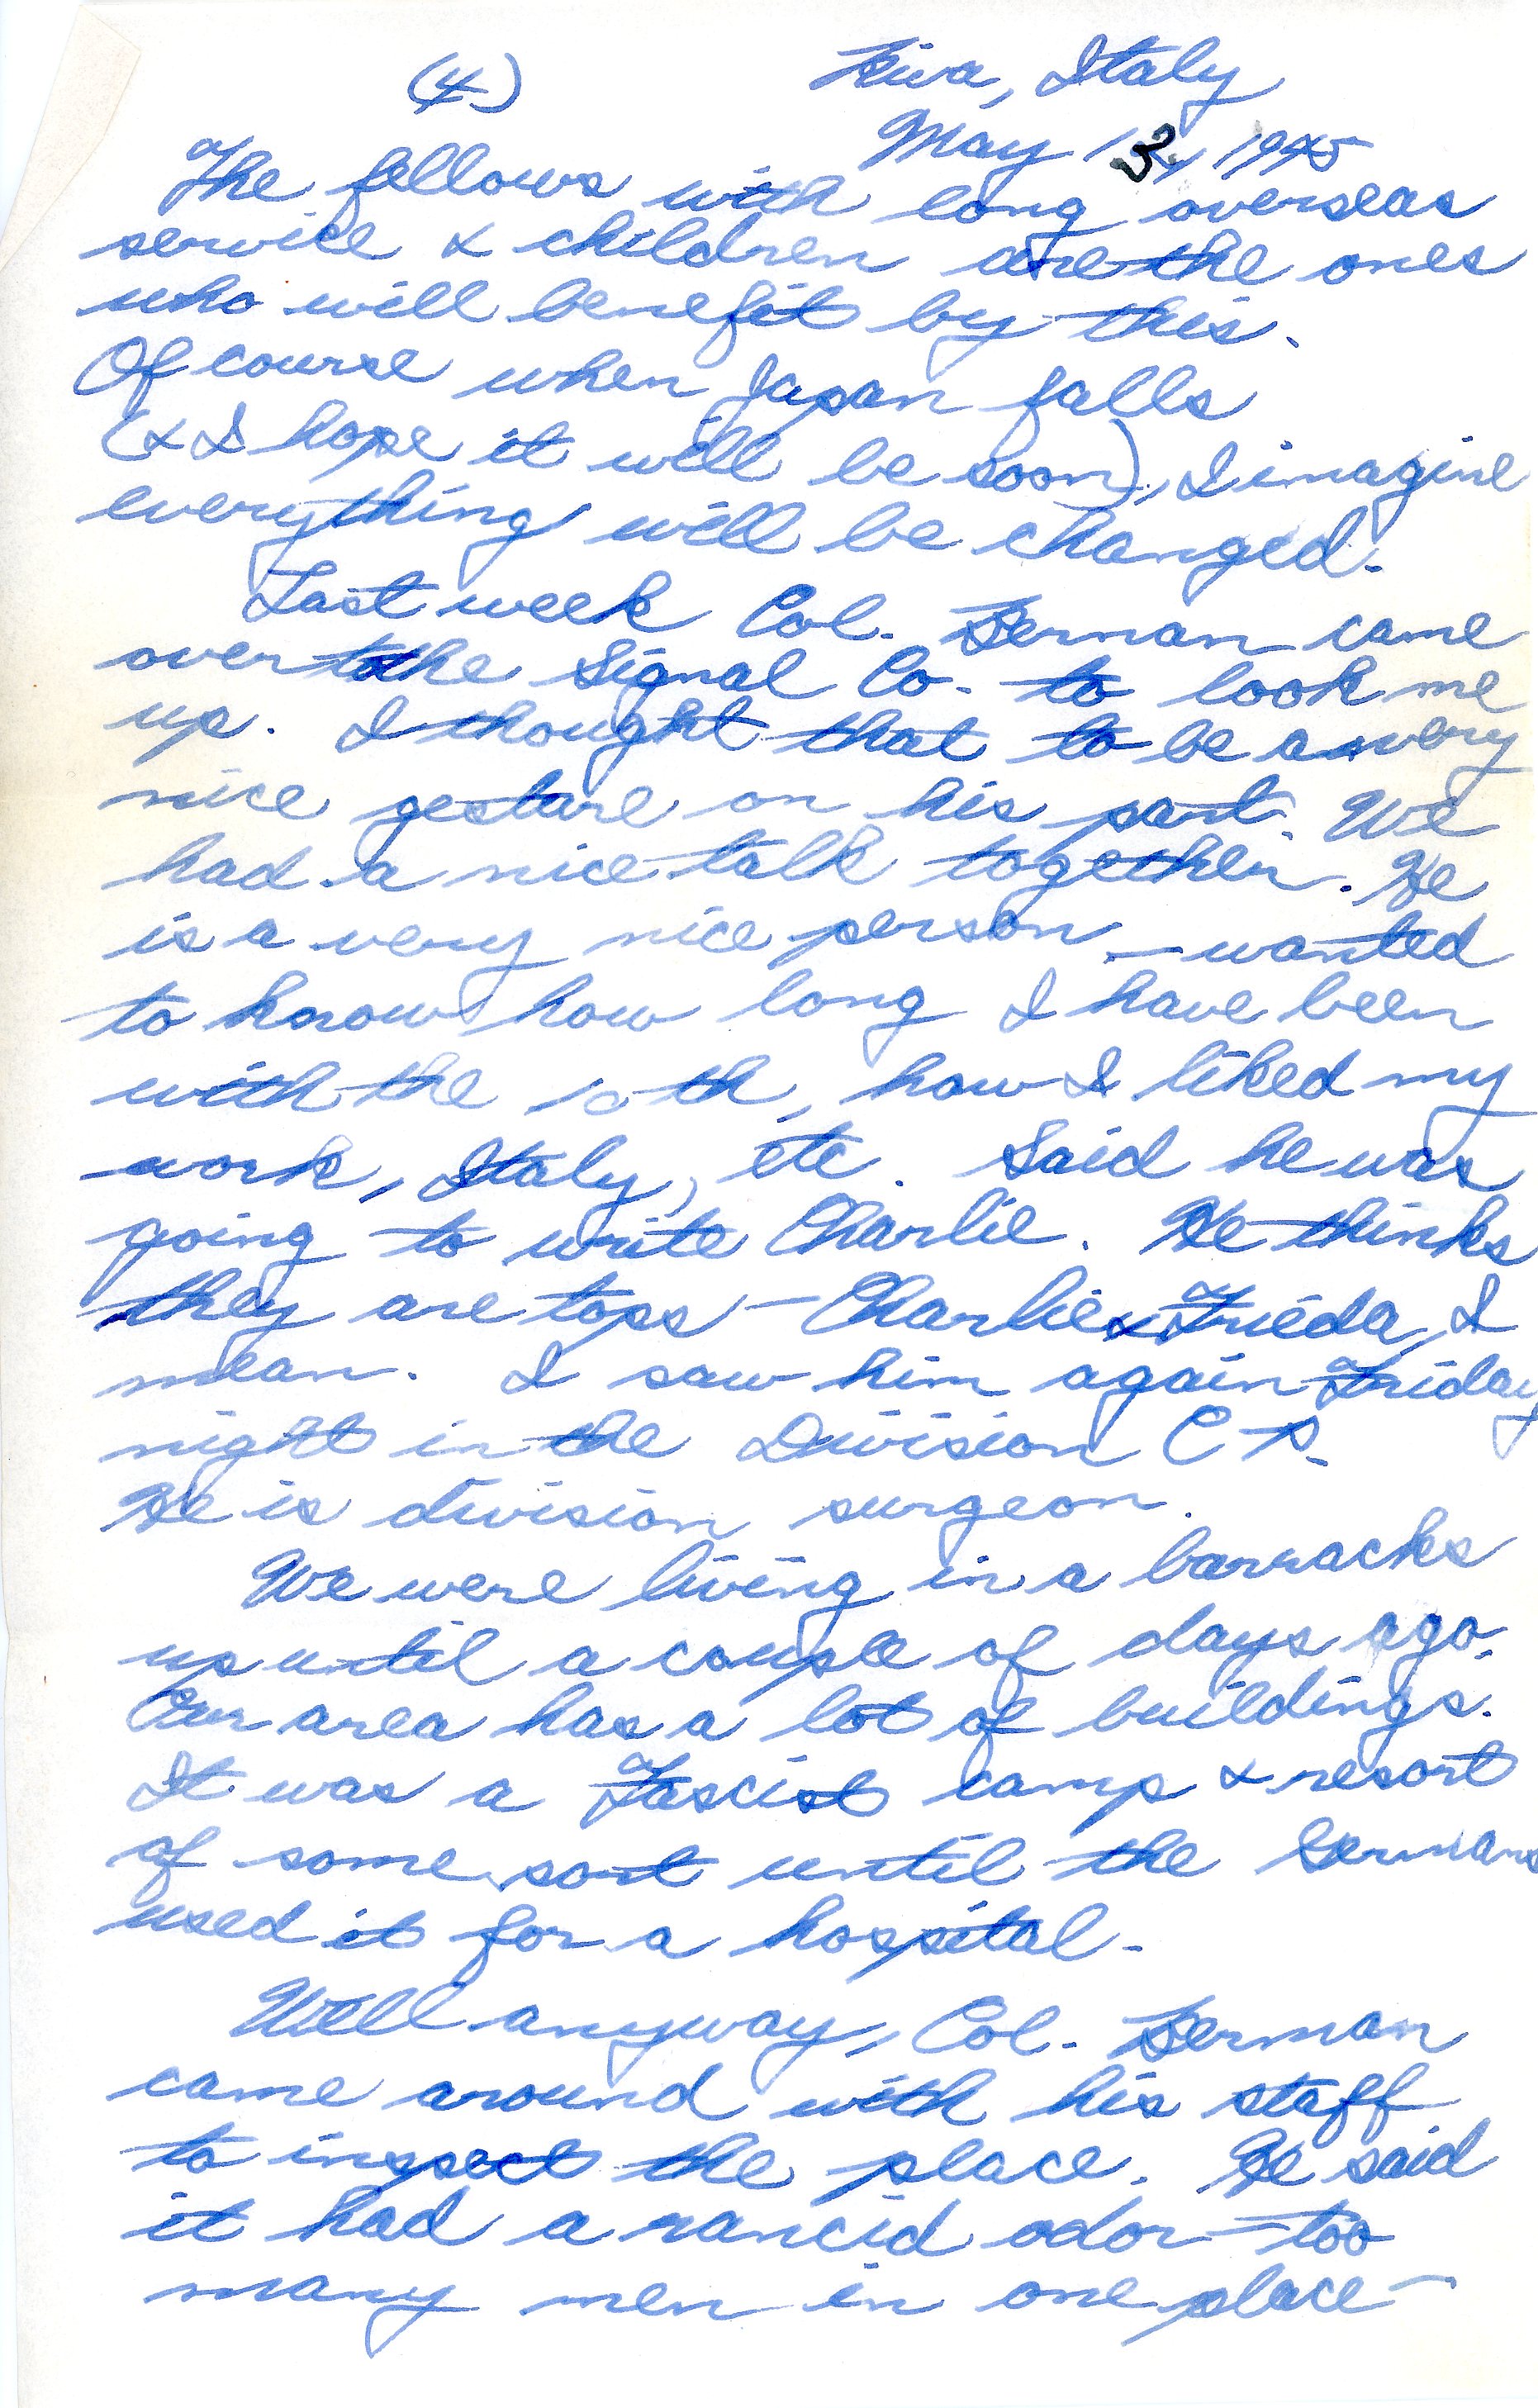 (4)
Riva, Italy
May 13, 1945
The fellows with long overseas
service & children are the ones
who will benefit by this.
Of course when Japan falls
(& I hope it will be soon), I imagine
everything will be changed.
Last week Col. Berman came
over to the Signal Co. to look me
up. I thought that to be a very
nice gesture on his part. We
had a nice talk together. He
is a very nice person — wanted
to know how long I have been
with the 10th, how I liked my
work, Italy, etc. Said he was
going to write Charlie. He thinks
they are tops — Charlie & Frieda, I
mean. I saw him again Friday
night in the Division CP.
He is division surgeon.
We were living in a barracks
up until a couple of days ago.
Our area has a lot of buildings.
It was a Fascist camp & resort
of some sort until the Germans
used it for a hospital.
Well anyway, Col. Berman
came around with his staff
to inspect the place. He said
it had a rancid odor — too
many men in one place —